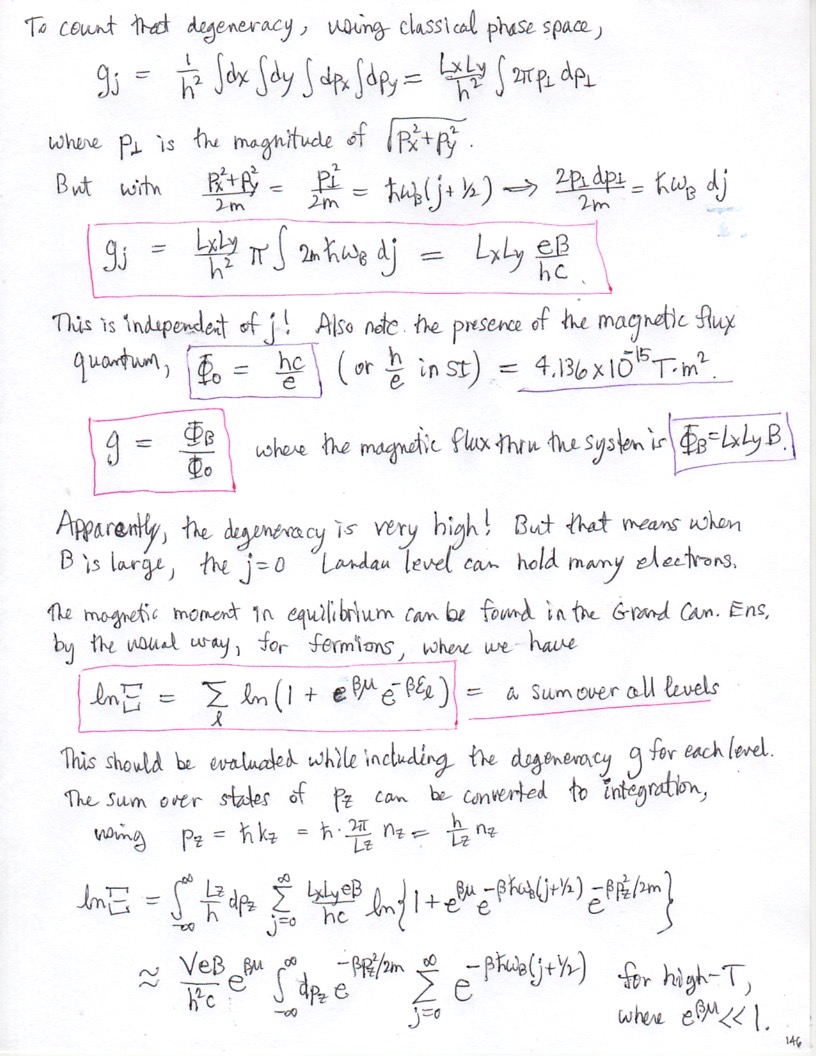 To count that degeneracy, using classical phase space,
g_j = 1/h² ∫dx ∫dy ∫dpx ∫dpy = LxLy/h² ∫ 2π p⊥ dp⊥
where p⊥ is the magnitude of √(px²+py²).
But with (px²+py²)/2m = p⊥²/2m = ħω_B(j+½) ⟹ 2p⊥dp⊥/2m = ħω_B dj
g_j = LxLy/h² π ∫ 2mħω_B dj = LxLy eB/hc.
This is independent of j! Also note the presence of the magnetic flux
quantum, Φ₀ = hc/e (or h/e in SI) = 4.136×10⁻¹⁵ T·m².
g = Φ_B/Φ₀ where the magnetic flux thru the system is Φ_B = LxLyB.
Apparently, the degeneracy is very high! But that means when
B is large, the j=0 Landau level can hold many electrons.
The magnetic moment in equilibrium can be found in the Grand Can. Ens,
by the usual way, for fermions, where we have
lnΞ = Σ_l ln(1 + e^{βμ} e^{-βε_l}) = a sum over all levels
This should be evaluated while including the degeneracy g for each level.
The sum over states of pz can be converted to integration,
using pz = ħkz = ħ·2π/Lz nz = h/Lz nz
lnΞ = ∫_{-∞}^{∞} Lz/h dpz Σ_{j=0}^{∞} LxLyeB/hc ln{1 + e^{βμ} e^{-βħω_B(j+½)} e^{-βpz²/2m}}
≈ VeB/h²c e^{βμ} ∫_{-∞}^{∞} dpz e^{-βpz²/2m} Σ_{j=0}^{∞} e^{-βħω_B(j+½)} for high-T,
where e^{βμ} << 1.
146